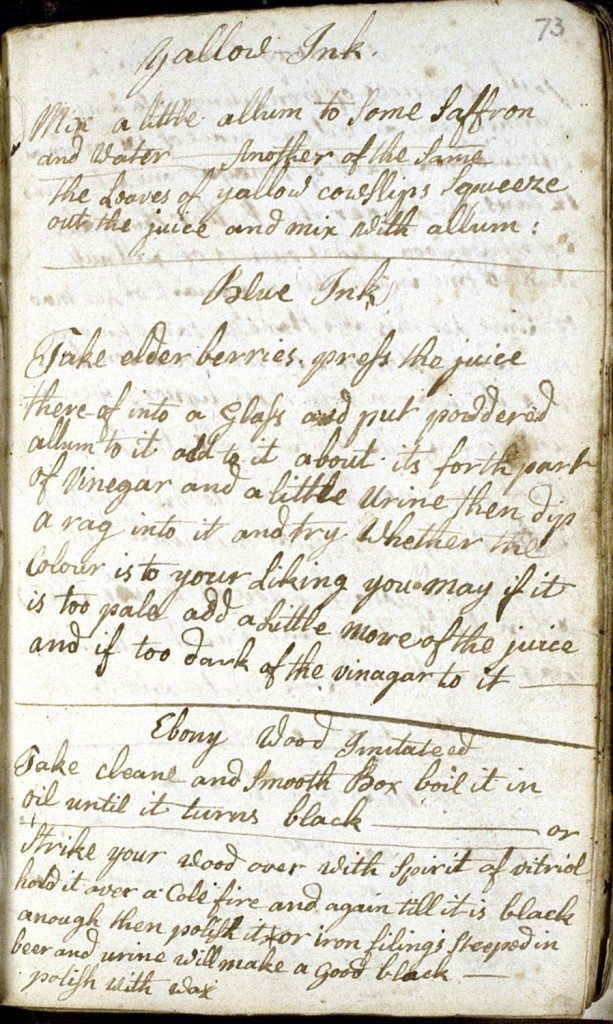 73
Yallow Ink.
Mix a little allum to Some Saffron
and Water — Another of the Same
the Leaves of yallow cowslips Squeeze
out the juice and mix with allum :
Blue Ink
Take elder berries press the juice
there of into a Glass and put powdered
allum to it add to it about its forth part
of Vinegar and a little Urine then dip
a rag into it and try Whether the
Colour is to your Liking you may if it
is too pale add a Little more of the juice
and if too dark of the vinagar to it —
Ebony Wood Imitateed
Take cleane and Smooth Box boil it in
oil until it turns black — or
Strike your Wood over With Spirit of vitriol
hold it over a Cole fire and again till it is black
anough then polish it or iron filings Steeped in
beer and urine will make a Good black —
polish with wax